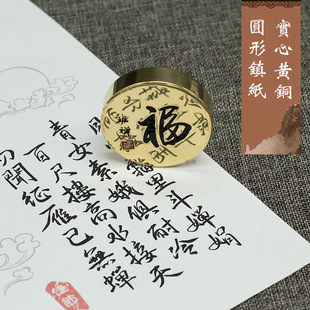 實心黃銅
圓形鎮紙
福
裡斗嬋娟
青女素娥俱耐冷
百尺樓高水接天
聞征雁已無蟬